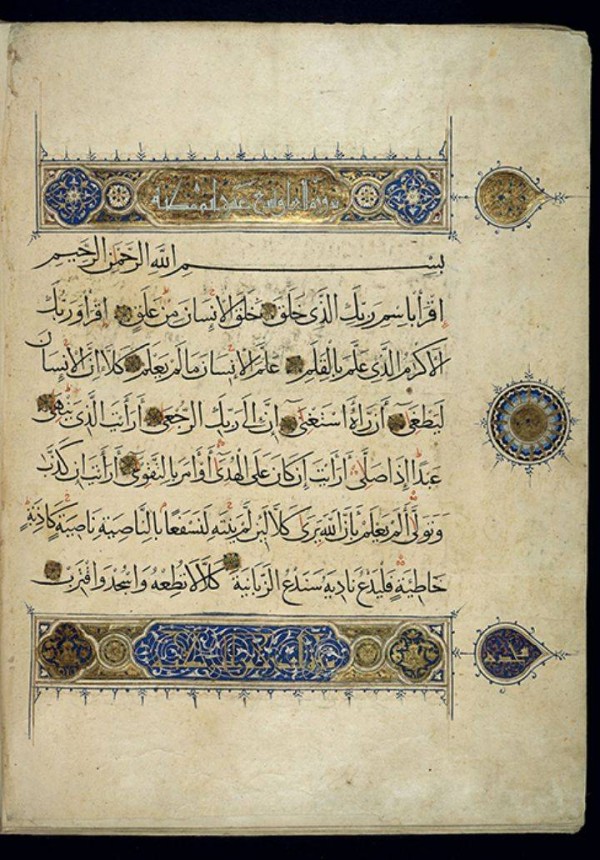 بسم الله الرحمن الرحيم
اقرأ باسم ربك الذي خلق خلق الانسان من علق اقرأ وربك
الاكرم الذي علم بالقلم علم الانسان ما لم يعلم كلا ان الانسان
ليطغى أن رآه استغنى ان الى ربك الرجعى أرأيت الذي ينهى
عبدا اذا صلى أرأيت ان كان على الهدى أو أمر بالتقوى أرأيت ان كذب
وتولى ألم يعلم بأن الله يرى كلا لئن لم ينته لنسفعا بالناصية ناصية كاذبة
خاطئة فليدع ناديه سندع الزبانية كلا لا تطعه واسجد واقترب